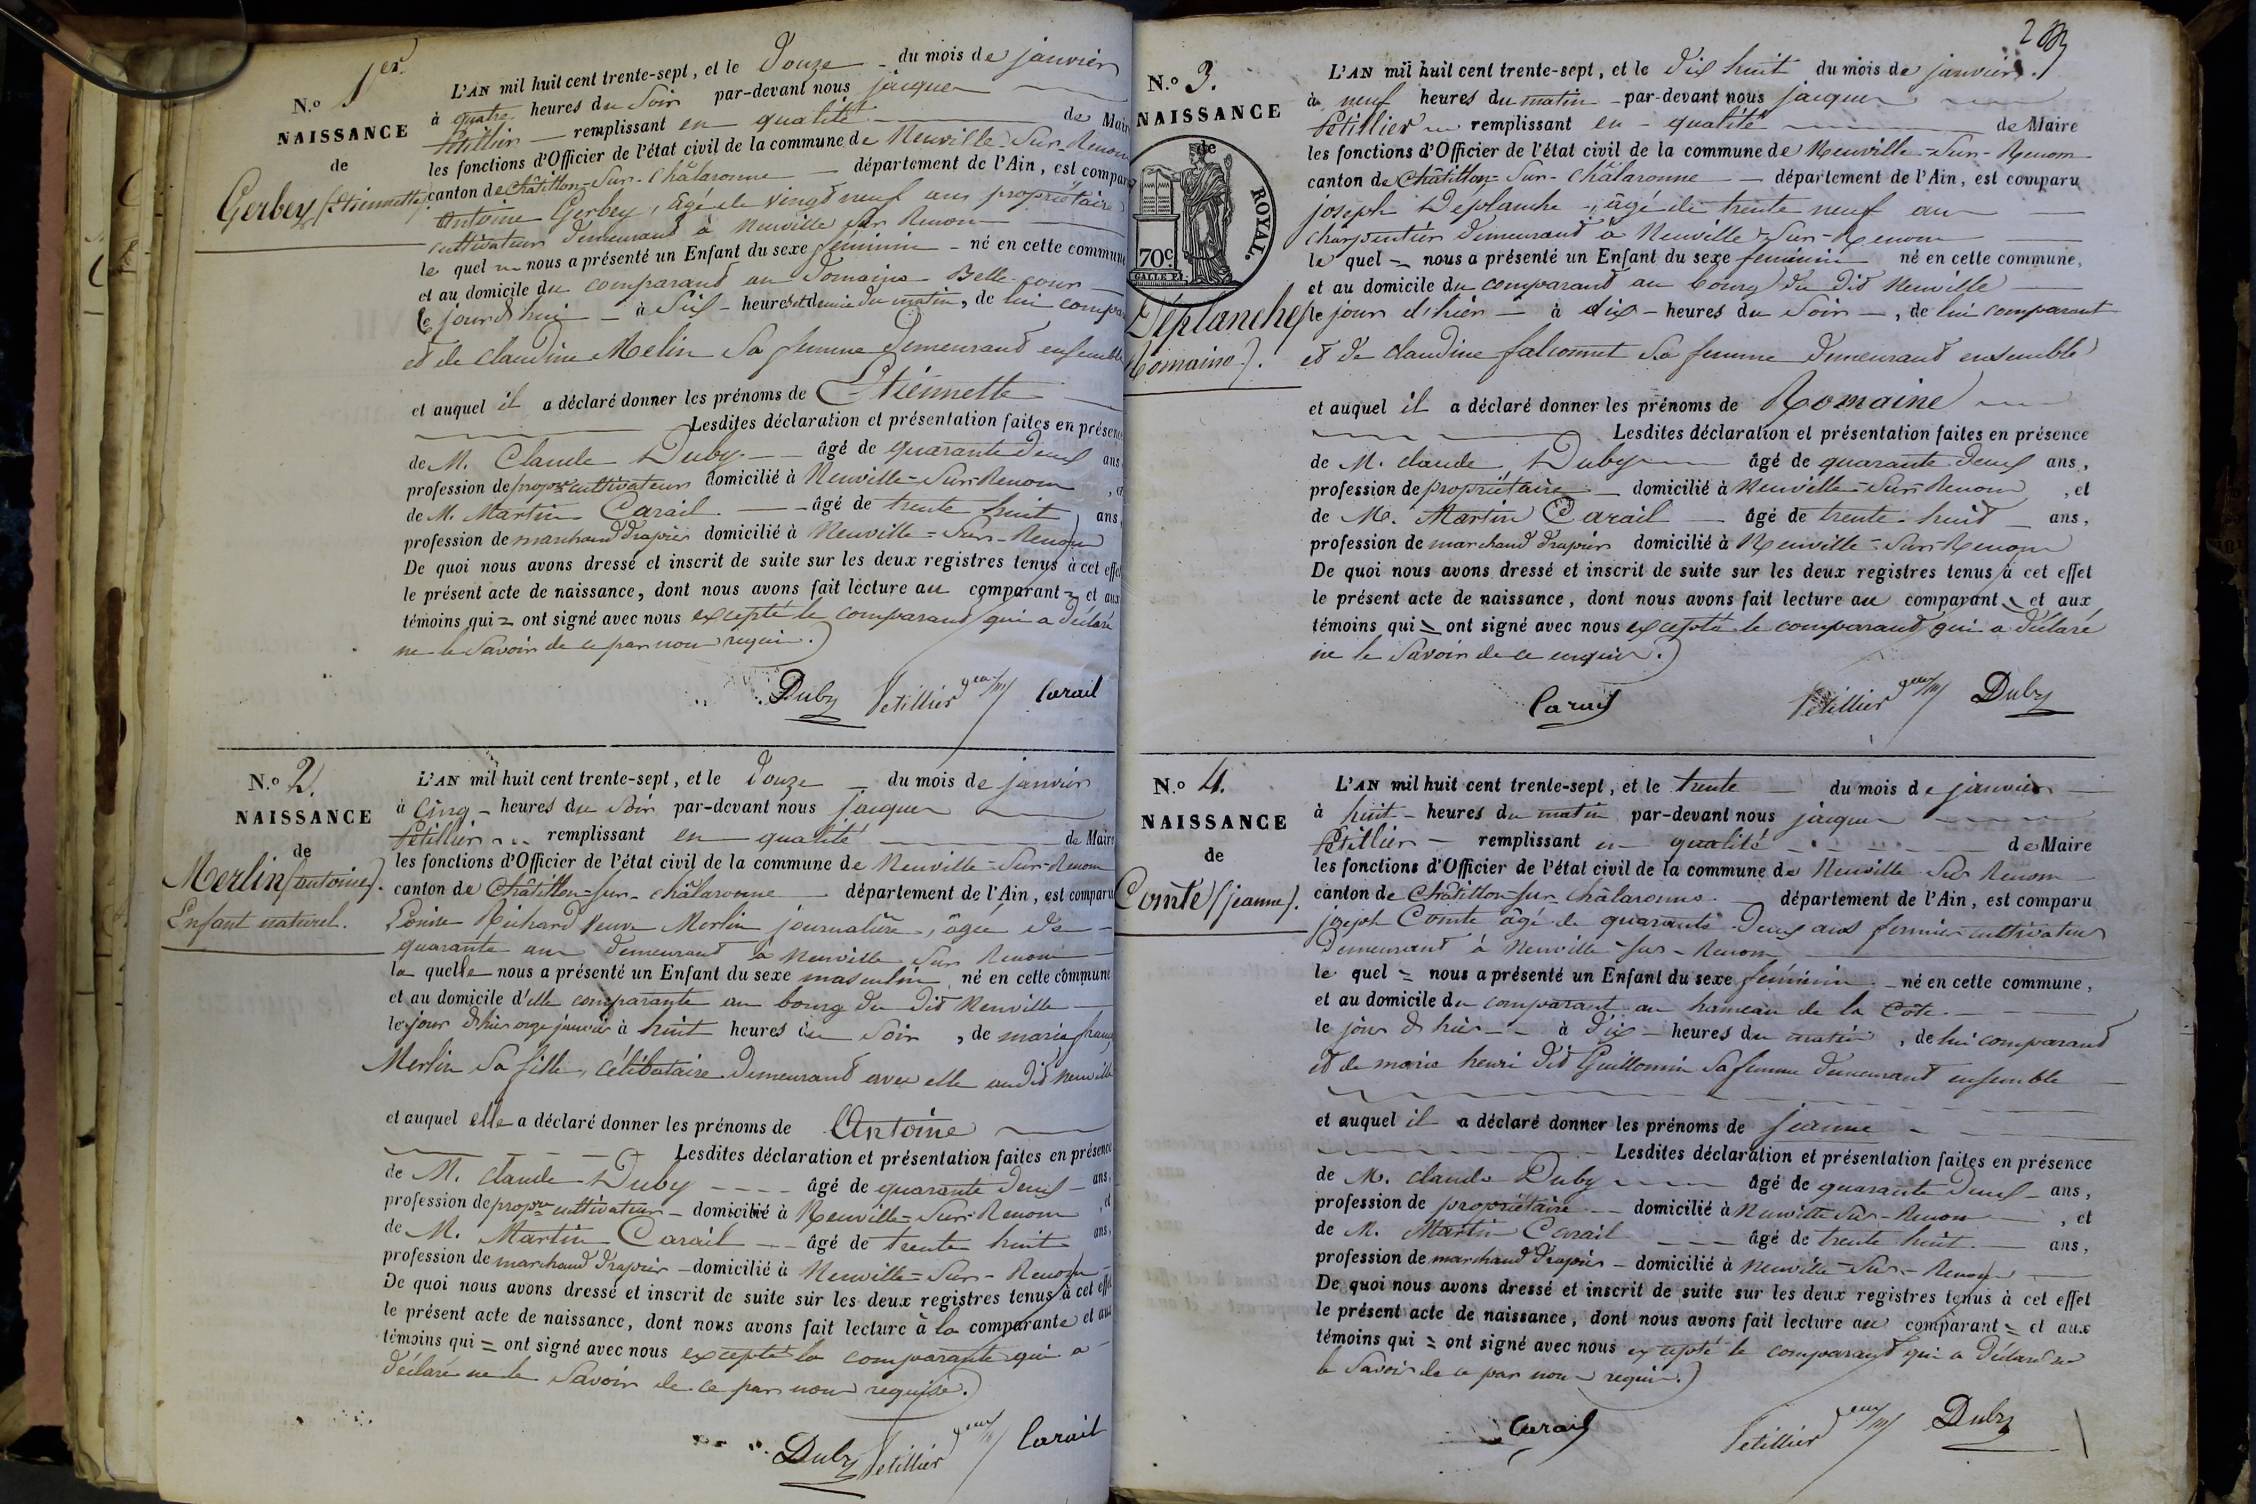 N.º 1er.
NAISSANCE
de
Gerbey (Etiennette).
L'AN mil huit cent trente-sept, et le Douze du mois de janvier
à quatre heures du Soir par-devant nous jacques
Petillier remplissant en qualité de Mair
les fonctions d'Officier de l'état civil de la commune de Neuville-Sur-Renom
canton de Châtillon-Sur-Châlaronne département de l'Ain, est compar
Antoine Gerbey, âgé de vingt neuf ans propriétaire
cultivateur demeurant à Neuville sur Renom
le quel nous a présenté un Enfant du sexe féminin né en cette commune
et au domicile du comparant au Domaine Belle-cour
ce jourd'hui à Six heures et demie du matin, de lui compar
et de claudine Melin Sa femme demeurant ensemble
et auquel il a déclaré donner les prénoms de Etiennette
Lesdites déclaration et présentation faites en présence
de M. Claude Duby âgé de quarante deux ans
profession de propre cultivateur domicilié à Neuville-Sur-Renom, et
de M. Martin Carail âgé de trente huit ans,
profession de marchand drapier domicilié à Neuville-Sur-Renom
De quoi nous avons dressé et inscrit de suite sur les deux registres tenus à cet effet
le présent acte de naissance, dont nous avons fait lecture au comparant et aux
témoins qui ont signé avec nous excepté le comparant qui a déclaré
ne le Savoir de ce par nous requis.
Duby Petillier Carail
N.º 2.
NAISSANCE
de
Merlin (antoine).
Enfant naturel.
L'AN mil huit cent trente-sept, et le Douze du mois de janvier
à Cinq heures du Soir par-devant nous jacques
Petillier remplissant en qualité de Maire
les fonctions d'Officier de l'état civil de la commune de Neuville-Sur-Renom
canton de Châtillon-sur-châlaronne département de l'Ain, est comparu
Louise Richard Veuve Merlin journalière, âgée de
quarante ans demeurant à Neuville Sur Renom
la quelle nous a présenté un Enfant du sexe masculin né en cette commune
et au domicile d'elle comparante au bourg du dit Neuville
le jour d'hier onze janvier à huit heures du Soir, de marie
Merlin Sa fille, célibataire demeurant avec elle audit Neuville
et auquel elle a déclaré donner les prénoms de Antoine
Lesdites déclaration et présentation faites en présence
de M. claude Duby âgé de quarante deux ans,
profession de propre cultivateur domicilié à Neuville-Sur-Renom, et
de M. Martin Carail âgé de trente huit ans,
profession de marchand drapier domicilié à Neuville-Sur-Renom
De quoi nous avons dressé et inscrit de suite sur les deux registres tenus à cet effet
le présent acte de naissance, dont nous avons fait lecture à la comparante et aux
témoins qui ont signé avec nous excepté la comparante qui a
déclaré ne le Savoir de ce par nous requise.
Duby Petillier Carail
N.º 3.
NAISSANCE
de
ROYAL.
70c.
Déplanche (
Romaine).
L'AN mil huit cent trente-sept, et le dix huit du mois de janvier
à neuf heures du matin par-devant nous jacques
Petillier remplissant en qualité de Maire
les fonctions d'Officier de l'état civil de la commune de Neuville-Sur-Renom
canton de Châtillon-Sur-Châlaronne département de l'Ain, est comparu
joseph Deplanche, âgé de trente neuf ans
charpentier demeurant à Neuville-Sur-Renom
le quel nous a présenté un Enfant du sexe féminin né en cette commune,
et au domicile du comparant au bourg du dit Neuville
le jour d'hier à dix heures du Soir, de lui comparant
et de claudine falconnet sa femme demeurant ensemble
et auquel il a déclaré donner les prénoms de Romaine
Lesdites déclaration et présentation faites en présence
de M. claude Duby âgé de quarante deux ans,
profession de propriétaire domicilié à Neuville-Sur-Renom, et
de M. Martin Carail âgé de trente-huit ans,
profession de marchand drapier domicilié à Neuville-Sur-Renom
De quoi nous avons dressé et inscrit de suite sur les deux registres tenus à cet effet
le présent acte de naissance, dont nous avons fait lecture au comparant et aux
témoins qui ont signé avec nous excepté le comparant qui a déclaré
ne le Savoir de ce enquis.
Carail Petillier Duby
N.º 4.
NAISSANCE
de
Comte (jeanne).
L'AN mil huit cent trente-sept, et le trente du mois de janvier
à huit heures du matin par-devant nous jacques
Petillier remplissant en qualité de Maire
les fonctions d'Officier de l'état civil de la commune de Neuville Sur Renom
canton de Châtillon-sur-châlaronne département de l'Ain, est comparu
joseph Comte âgé de quarante deux ans fermier cultivateur
demeurant à Neuville-sur-Renom
le quel nous a présenté un Enfant du sexe féminin né en cette commune,
et au domicile du comparant au hameau de la Côte
le jour d'hier à dix heures du matin, de lui comparant
et de marie henri dit Guillonnin Sa femme demeurant ensemble
et auquel il a déclaré donner les prénoms de jeanne
Lesdites déclaration et présentation faites en présence
de M. claude Duby âgé de quarante deux ans,
profession de propriétaire domicilié à Neuville Sur-Renom, et
de M. Martin Carail âgé de trente huit ans,
profession de marchand drapier domicilié à Neuville-Sur-Renom
De quoi nous avons dressé et inscrit de suite sur les deux registres tenus à cet effet
le présent acte de naissance, dont nous avons fait lecture au comparant et aux
témoins qui ont signé avec nous excepté le comparant qui a déclaré ne
le Savoir de ce par nous requis.
Carail Petillier Duby